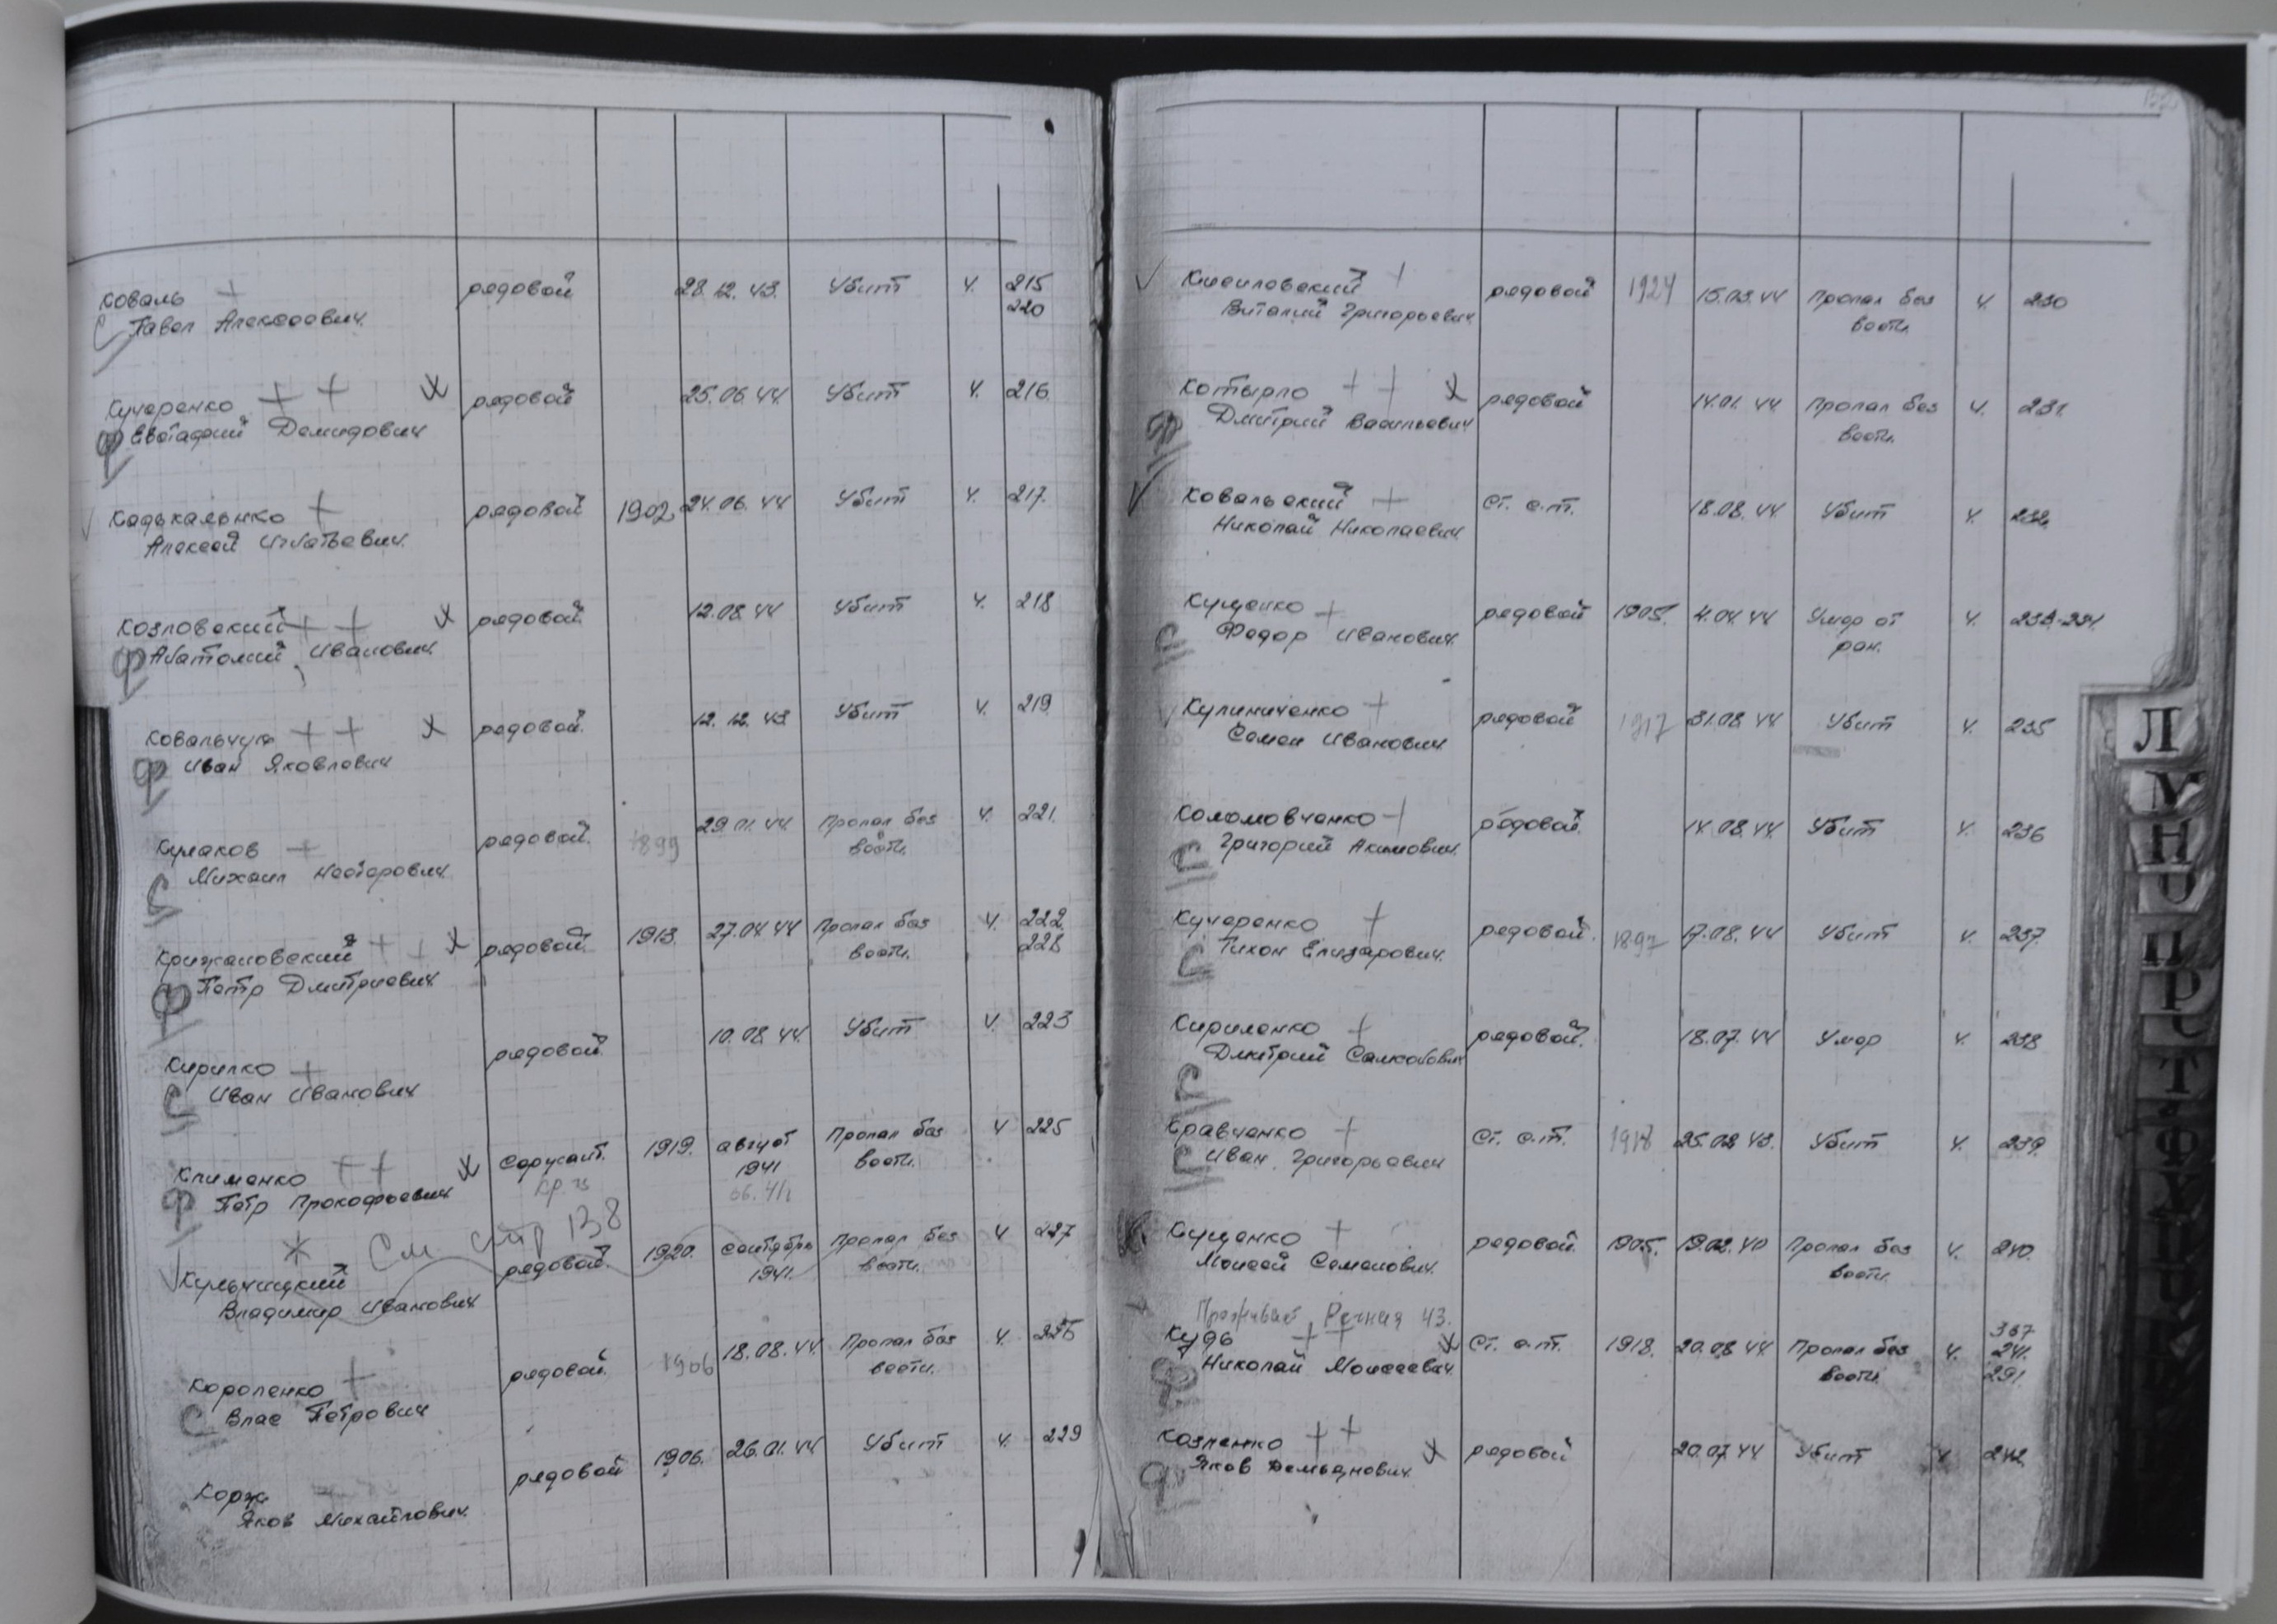 Коваль + рядовой 28.12.43. Убит Ч. 215
С Павел Алексеевич. 220
Кучеренко + + х рядовой 25.06.44. Убит Ч. 216.
Ф Евстафий Демидович
+ рядовой 1902 24.06.44 Убит Ч. 217.
Алексей Игнатьевич.
Козловский + + х рядовой 12.08.44 Убит Ч. 218
Ф Анатолий Иванович.
Ковальчук + + х рядовой. 12.12.43 Убит Ч. 219
Ф Иван Яковлевич
Кулаков + рядовой. 1899 29.01.44. Пропал без Ч. 221.
С Михаил Нестерович. вести.
Крижановский + + х рядовой. 1913. 27.04.44 Пропал без Ч. 222.
Ф Петр Дмитриевич. вести. 228
Кирилко + рядовой. 10.08.44. Убит Ч. 223
С Иван Иванович
Клименко + + х Сержант. 1919. август Пропал без Ч 225
Ф Петр Прокофьевич 1941 вести.
* См стр 138
Кульчицкий рядовой. 1920. сентябрь Пропал без Ч 227
Владимир Иванович 1941. вести.
Короленко + рядовой. 1906 18.08.44. Пропал без Ч. 226
С Влас Петрович вести.
Корж рядовой 1906. 26.01.44 Убит Ч. 229
Яков Михайлович.
Кисиловский + рядовой 1924 15.03.44 Пропал без Ч. 230
Виталий Григорьевич вести.
Котырло + + х рядовой 14.01.44 Пропал без Ч. 231.
Ф Дмитрий Васильевич вести.
Ковальский + Ст. с-т. 18.08.44. Убит Ч. 232.
Николай Николаевич
Кущенко + рядовой 1905. 4.04.44 Умер от Ч. 233-234.
С Федор Иванович. ран.
Кулиниченко + рядовой 1917 31.08.44 Убит Ч. 235
Семен Иванович
Коломовченко + рядовой. 14.08.44 Убит Ч. 236
С Григорий Акимович.
Кучеренко + рядовой. 1897 17.08.44 Убит Ч. 237.
С Тихон Елизарович.
Кириленко + рядовой. 18.07.44 Умер Ч. 238
С Дмитрий
Кравченко + Ст. с-т. 1918 25.08.43. Убит Ч. 239.
С Иван Григорьевич
Кущенко + рядовой. 1905. Пропал без Ч. 240.
Моисей Семенович. вести.
Проживает Речная 43.
Кудь + + х Ст. с-т. 1918. 20.08.44. Пропал без Ч. 367
Ф Николай Моисеевич. вести. 241.
291.
Козленко + + х рядовой 20.07.44 Убит Ч 242.
Ф Яков Демьянович.
Л
М
Н
О
П
Р
С
Т
У
Ф
Х